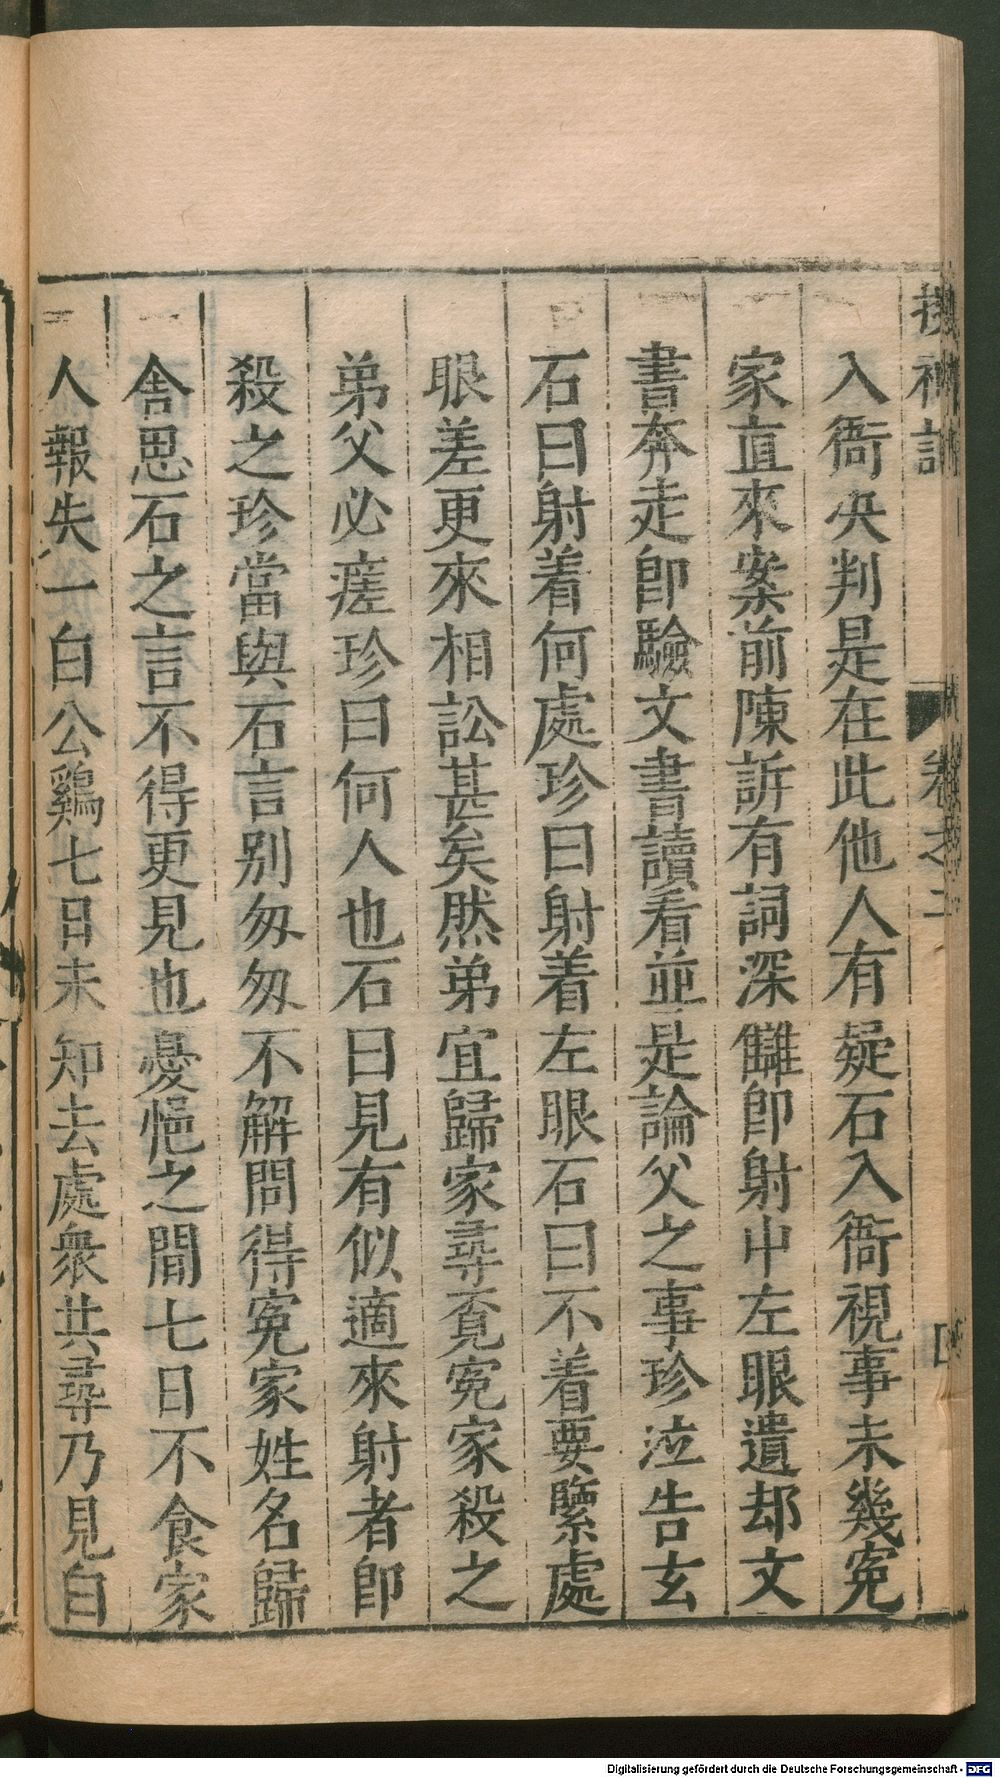 搜神記
卷之二
入衙夬判是在此他人有疑石入衙視事未幾寃
家直來案前陳訴有詞深讎卽射中左眼遺却文
書奔走卽驗文書讀看並是論父之事珍泣告玄
石曰射着何處珍曰射着左眼石曰不着要緊處
眼差更來相訟甚矣然弟宜歸家尋覓寃家殺之
弟父必瘥珍曰何人也石曰見有似適來射者卽
殺之珍當與石言别匆匆不解問得寃家姓名歸
舍思石之言不得更見也憂悒之間七日不食家
人報失一白公鷄七日未知去處衆共尋乃見白
Digitalisierung gefördert durch die Deutsche Forschungsgemeinschaft - DFG